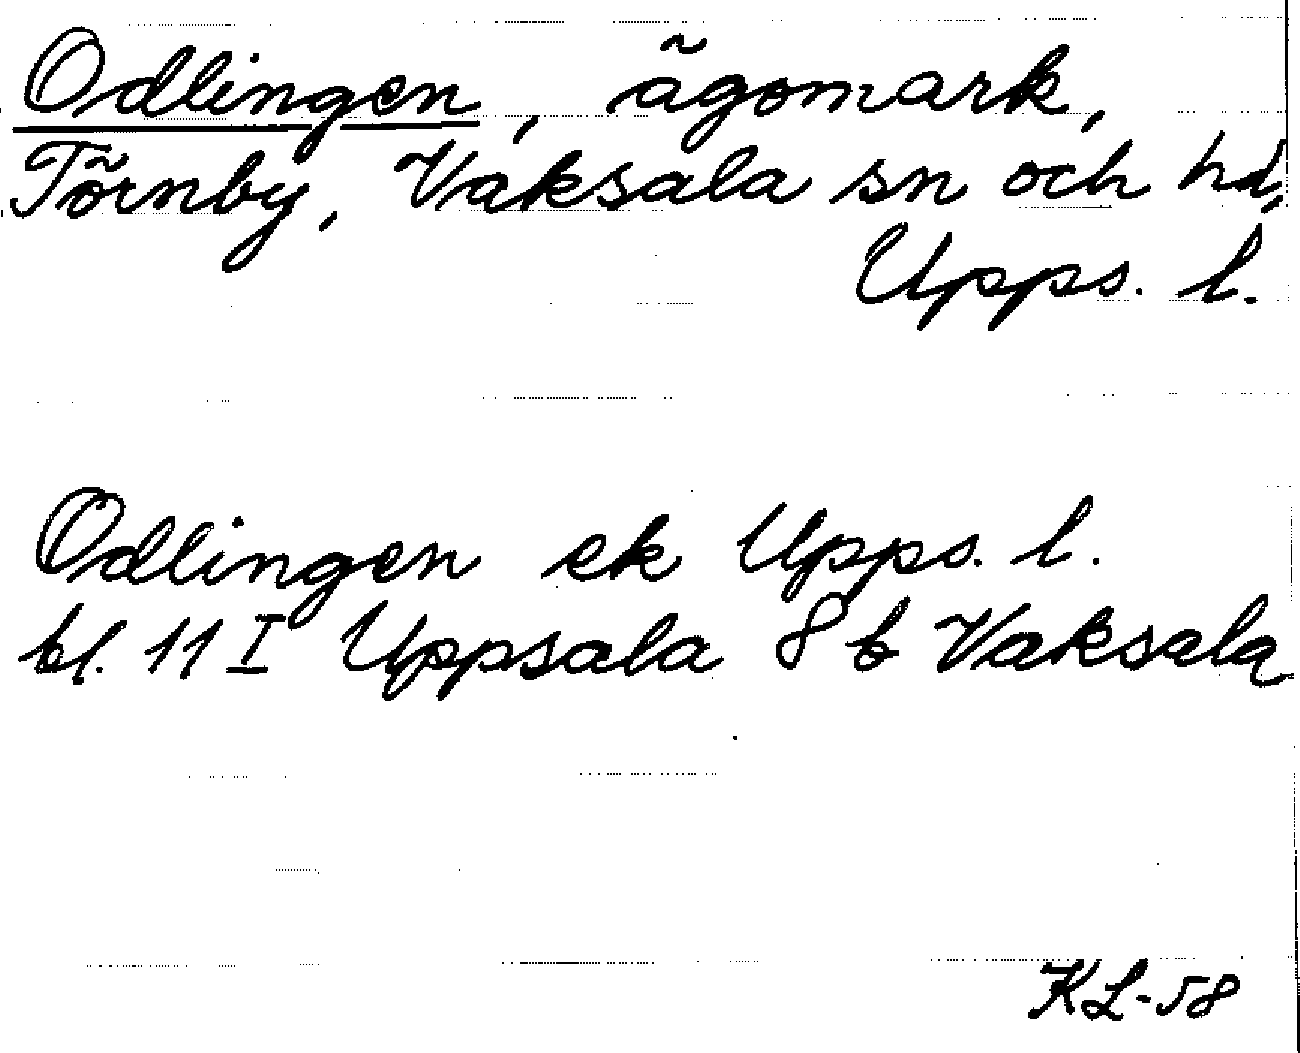 Odlingen, ägomark,
Törnby, Vaksala sn och hd,
Upps. l.
Odlingen ek Upps. l.
bl. 11 I Uppsala 8 b Vaksala
KL-58